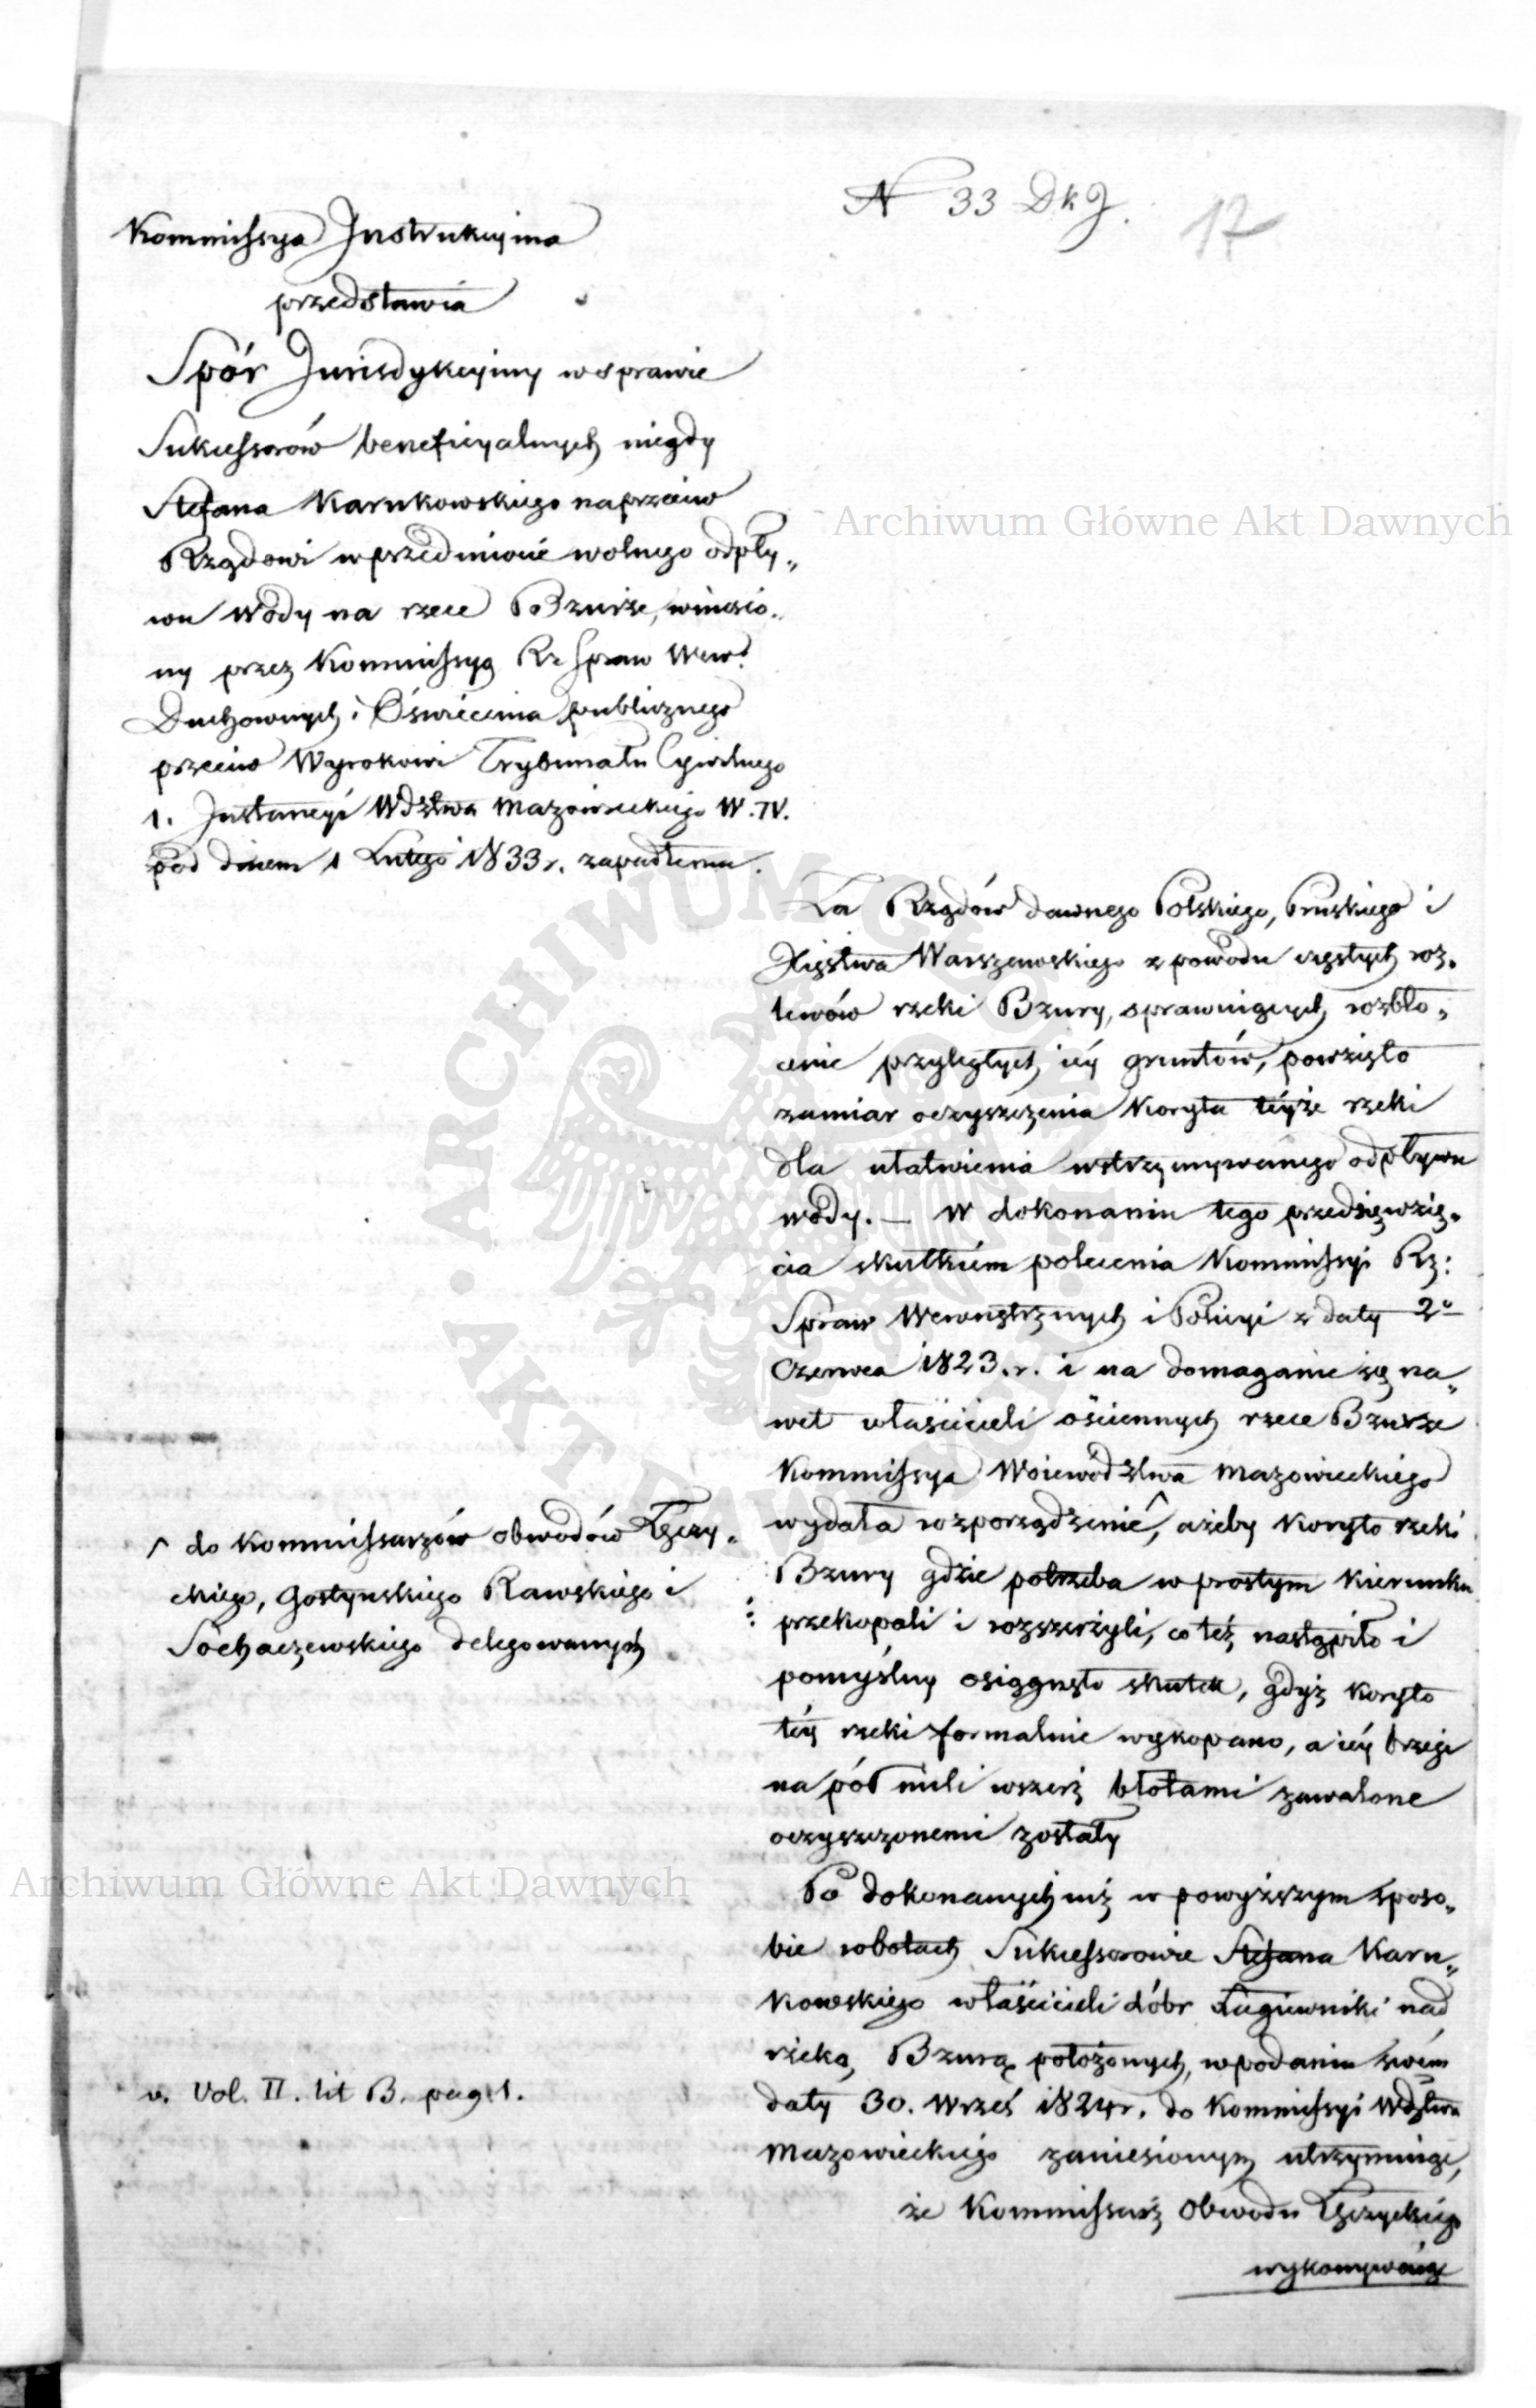 N 33 DkJ.
17
Kommissya Instrukcyjna
przedstawia
Spór Jurisdykcyiny w sprawie
Sukcessorów beneficyalnych niegdy
Stefana Karnkowskiego naprzeciw
Rządowi w przedmiocie wolnego odpły„
wu wody na rzece Bzurze, wniesio„
ny przez Kommissyą Rz Spraw Wew:
Duchownych i Oświecenia publicznego
przeciw Wyrokowi Trybunału Cywilnego
1. Instancyi Wdztwa Mazowieckiego W. IV.
pod dniem 1 Lutego 1833 r. zapadłemu.
Za Rządów dawnego Polskiego, Pruskiego i
Xięstwa Warszawskiego z powodu częstych roz„
lewów rzeki Bzury, sprawuiących rozbło„
cenie przyległych iéy gruntów, powzięto
zamiar oczyszczenia Koryta téyże rzeki
dla ułatwienia wstrzymywanego odpływu
wody. — W dokonaniu tego przedsięwzię„
cia skutkiem polecenia Kommissyi Rz:
Spraw Wewnętrznych i Policyi z daty 2º
Czerwca 1823. r. i na domaganie się na„
wet właścicieli ościennych rzece Bzurze
Kommissya Woiewództwa Mazowieckiego
wydała rozporządzenie ^, ażeby Koryto rzeki
^ do Kommissarzów obwodów Łęczy„
ckiego, Gostynskiego Rawskiego i
Sochaczewskiego delegowanych
Bzury gdzie potrzeba w prostym Kierunku
przekopali i rozszerzyli, co też nastąpiło i
pomyślny osiągnęło skutek, gdyż Koryto
téy rzeki formalnie wykopano, a iéy brzegi
na pół mili wszerz błotami zawalone
oczyszczonemi zostały
Po dokonanych iuż w powyższym sposo„
bie robotach Sukcessorowie Stefana Karn„
kowskiego właściciele dóbr Łagiewniki nad
rzeką Bzurą położonych, w podaniu swém
daty 30. Wrześ 1824 r. do Kommissyi Wdztwa
v. Vol. II. lit B. pag 1.
Mazowieckiego zaniesionym utrzymuiąc,
że Kommissarz Obwodu Łęczyckiego
wykonywaiąc